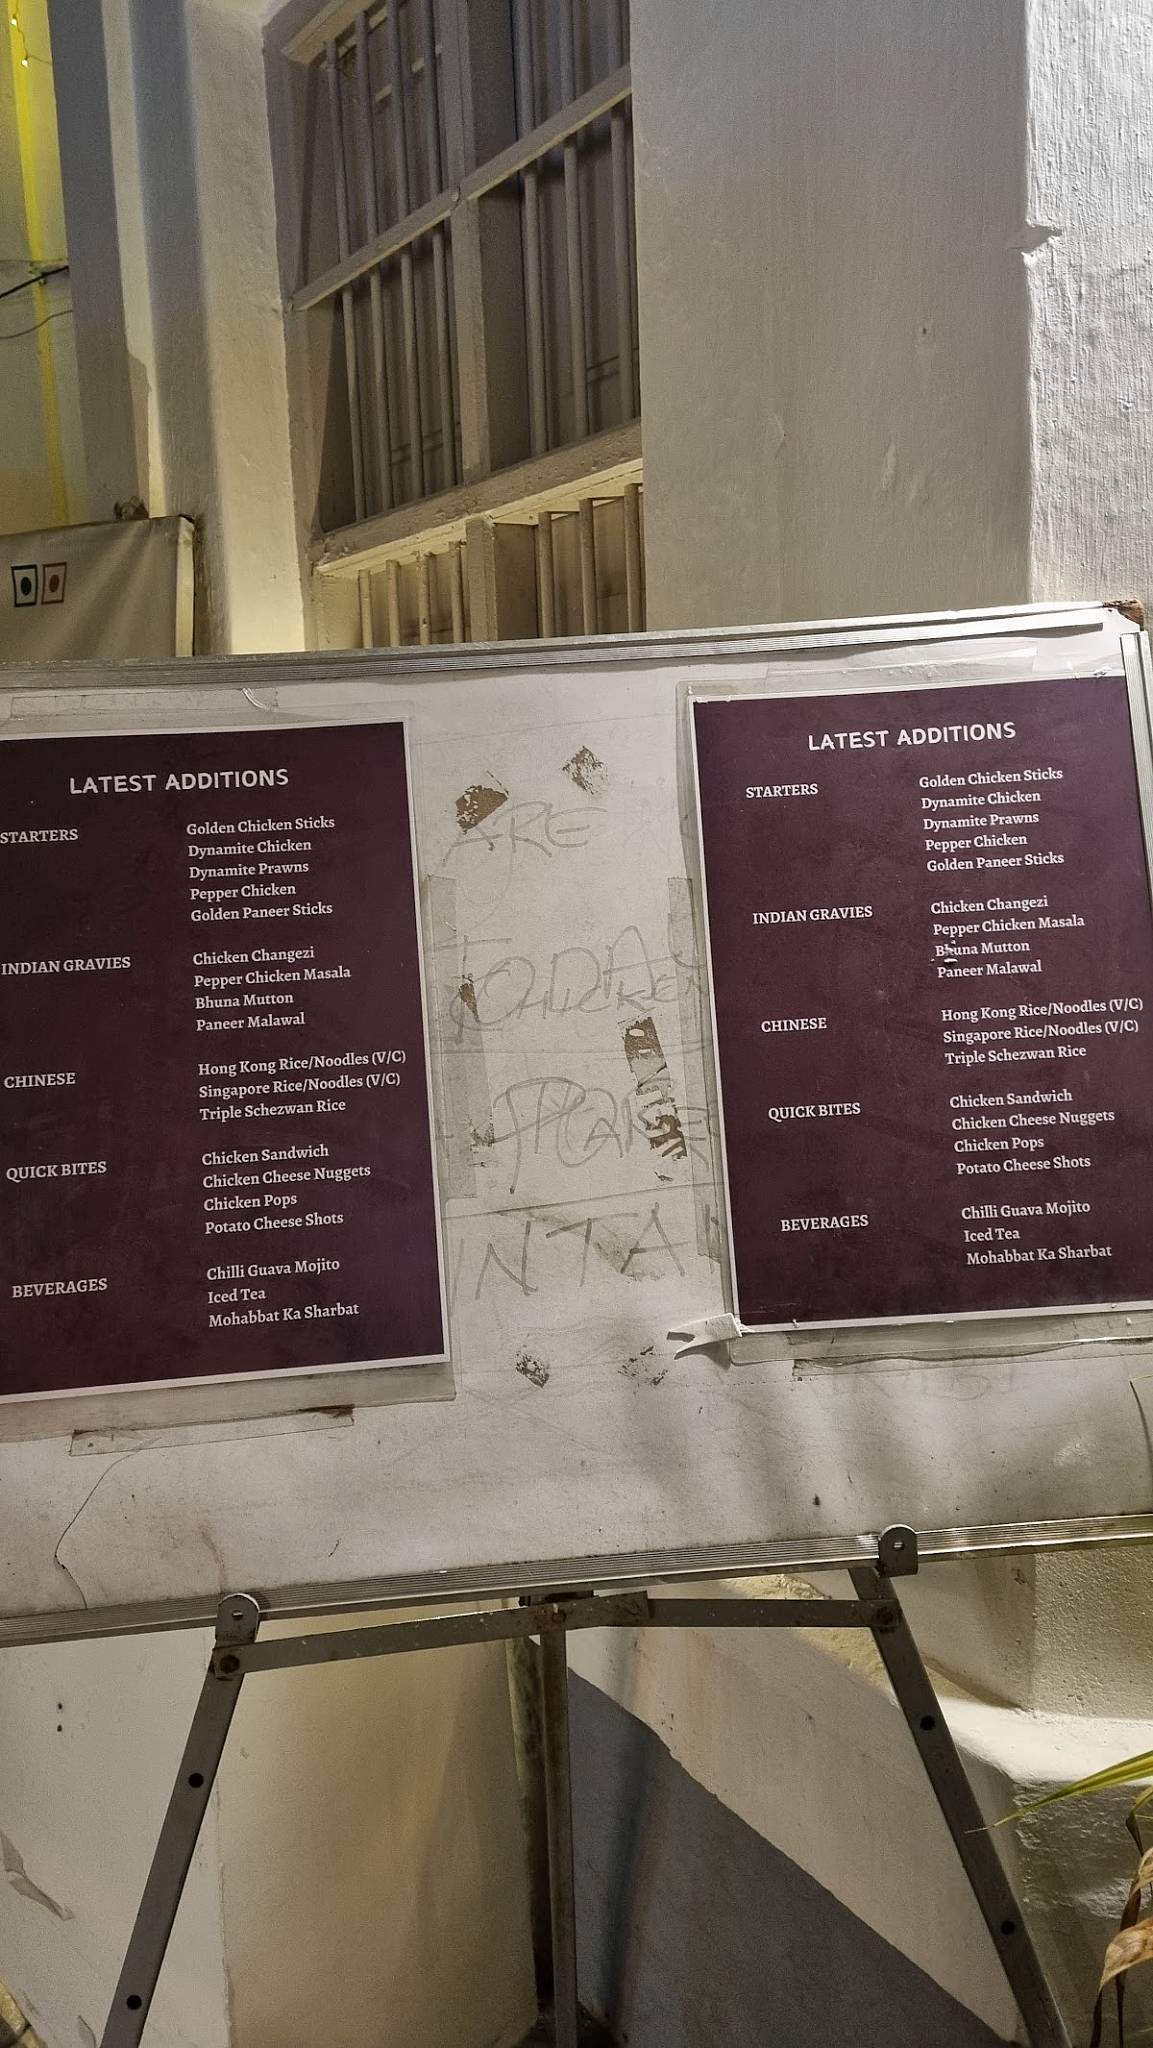 LATEST ADDITIONS
STARTERS
Golden Chicken Sticks
Dynamite Chicken
Dynamite Prawns
Pepper Chicken
Golden Paneer Sticks
INDIAN GRAVIES
Chicken Changezi
Pepper Chicken Masala
Bhuna Mutton
Paneer Malawal
CHINESE
Hong Kong Rice/Noodles (V/C)
Singapore Rice/Noodles (V/C)
Triple Schezwan Rice
QUICK BITES
Chicken Sandwich
Chicken Cheese Nuggets
Chicken Pops
Potato Cheese Shots
BEVERAGES
Chilli Guava Mojito
Iced Tea
Mohabbat Ka Sharbat
ARE
LATEST ADDITIONS
STARTERS
Golden Chicken Sticks
Dynamite Chicken
Dynamite Prawns
Pepper Chicken
Golden Paneer Sticks
INDIAN GRAVIES
Chicken Changezi
Pepper Chicken Masala
Bhuna Mutton
Paneer Malawal
CHINESE
Hong Kong Rice/Noodles (V/C)
Singapore Rice/Noodles (V/C)
Triple Schezwan Rice
QUICK BITES
Chicken Sandwich
Chicken Cheese Nuggets
Chicken Pops
Potato Cheese Shots
BEVERAGES
Chilli Guava Mojito
Iced Tea
Mohabbat Ka Sharbat